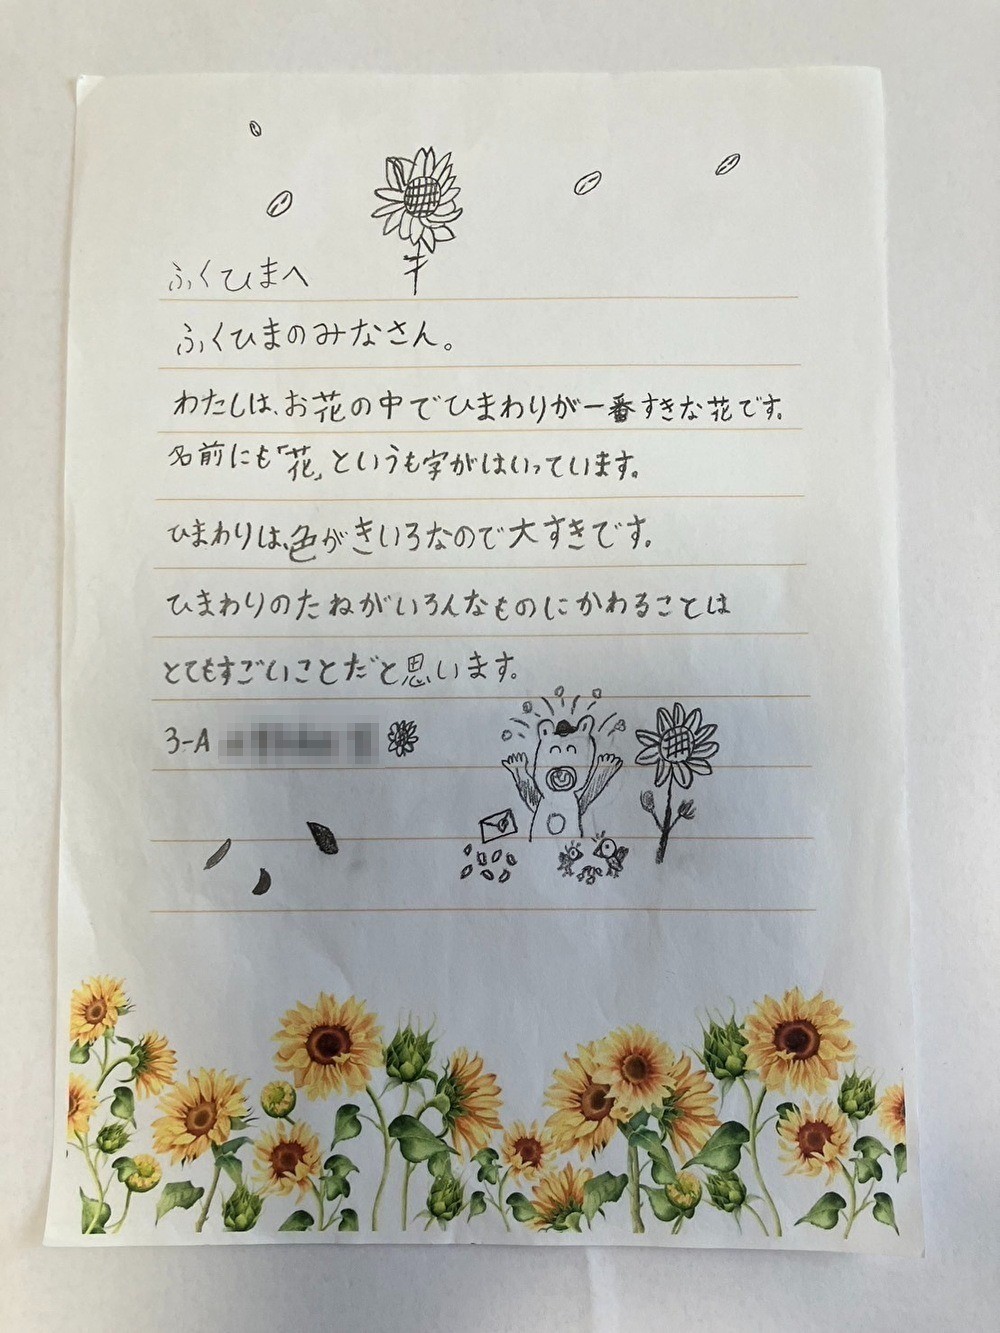 ふくひまへ
ふくひまのみなさん。
わたしは、お花の中でひまわりが一番すきな花です。
名前にも「花」というも字がはいっています。
ひまわりは、色がきいろなので大すきです。
ひまわりのたねがいろんなものにかわることは
とてもすごいことだと思います。
3-A